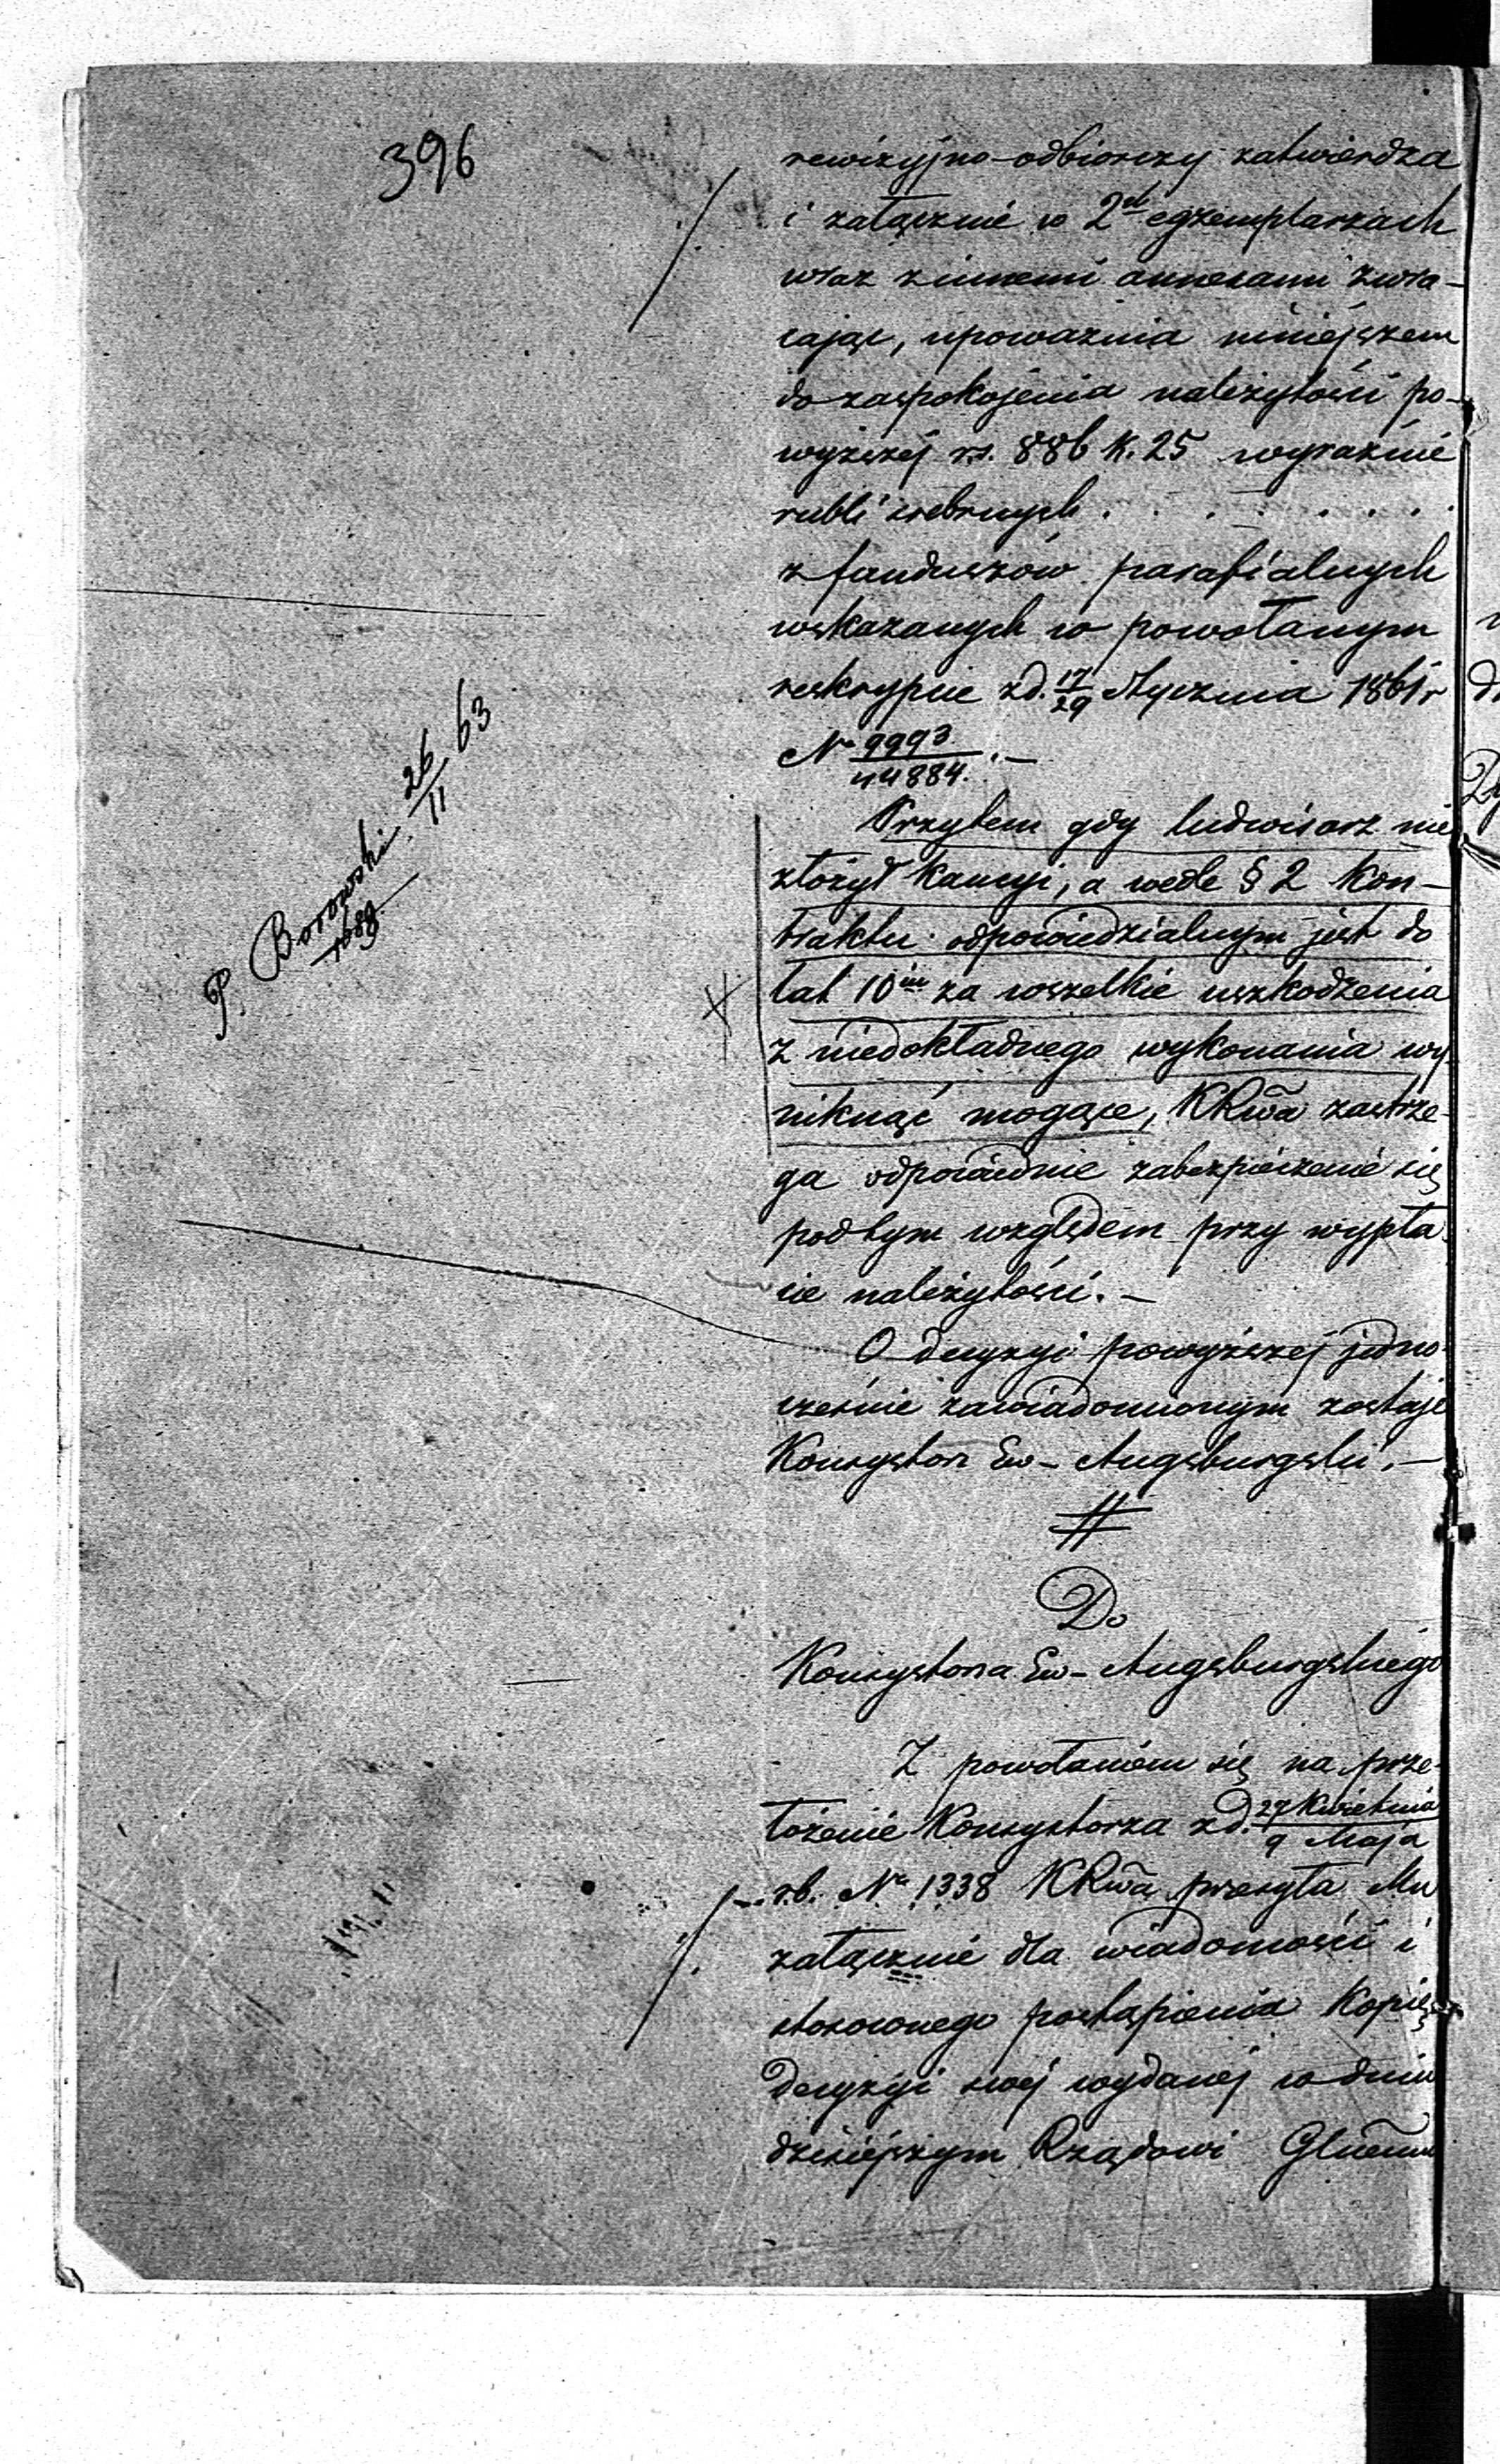 396
rewizyjno-odbiorczy zatwierdza
i załącznie w 2ch egzemplarzach
wraz z innemi annexami zwra-
cając, upoważnia niniejszem
do zaspokojenia należytości po-
wyższej rs. 886 k. 25 wyraźnie
rubli srebrnych . . . . . . .
z funduszów parafialnych
wskazanych w powołanym
reskrypcie z d. 17/29 Stycznia 1861 r
No 9993/44884. . —
Przytem gdy ludwisarz nie
złożył Kaucyi, a wedle § 2 Kon-
traktu odpowiedzialnym jest do
lat 10iu za wszelkie uszkodzenia
z niedokładnego wykonania wy-
niknąć mogące, KRwa zastrze-
ga odpowiednie zabezpieczenie się
pod tym względem przy wypła-
cie należytości. —
O decyzyi powyższej jedno-
cześnie zawiadomionym zostaje
Konsystorz Ew-Augsburgski. —
P. Borowski 26/11 63
1689
Do
Konsystorza Ew-Augsburgskiego
Z powołaniem się na prze-
łożenie Konsystorza z d. 27 Kwietnia/9 Maja
r.b. No 1338 KRwa przesyła Mu
załącznie dla wiadomości i
stosownego postąpienia Kopię
Decyzyi swej wydanej w dniu
dzisiejszym Rządowi